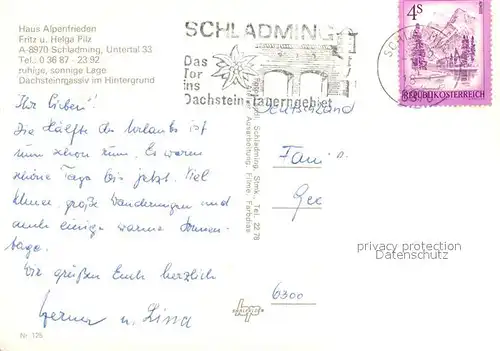 Haus Alpenfrieden
Fritz u. Helga Pilz
A-8970 Schladming, Untertal 33
Tel.: 0 36 87 - 23 92
ruhige, sonnige Lage
Dachsteinmassiv im Hintergrund
SCHLADMING
Das
Tor
ins
Dachstein-Tauerngebiet
4S
REPUBLIK ÖSTERREICH
Ihr Lieben!
Die Hälfte des Urlaubs ist
nun schon rum. Es waren
schöne Tage bis jetzt. Viel
kleine, große Wanderungen und
auch einige warme Sonnen-
tage.
Wir grüßen Euch herzlich
Werner u. Lissa
Schladming, Stmk., Tel. 22 78
Ausarbeitung, Filme, Farbdias
Deutschland
Fam
6300
privacy protection
Datenschutz
Nr. 126